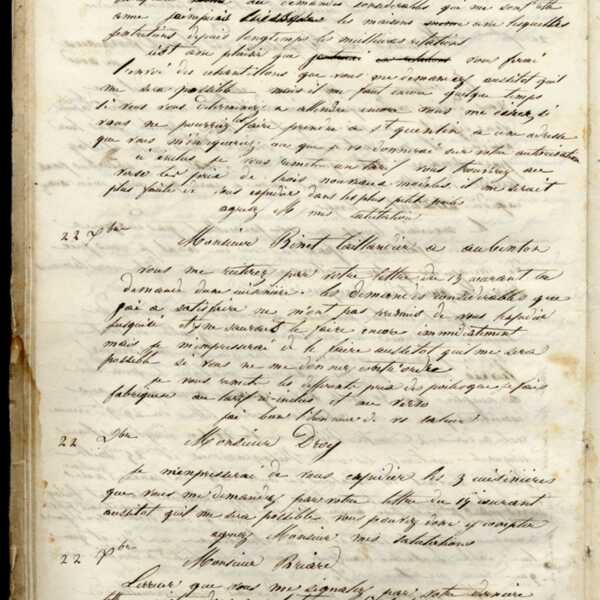 au demandes considerables que me sont
les maisons avec lesquelles
depuis longtemps les meilleures relations
plaisir que vous ferai
l'envoi des echantillons que vous me demandez aussitot qu'il
me sera possible mais il me faut encore quelque temps
si vous vous determinez a attendre encore vous me direz si
vous ne pourriez faire prendre a St quentin a une adresse
que vous m'indiqueriez ou que je vs donnerai sur votre autorisation
ci inclus je vous remets un tarif vous trouverez au
verso les prix de trois nouveaux modeles il me serait
plus facile de vous expedier dans les plus petits
agreez M mes salutations
22 Xbre Monsieur Binet taillandier a aubenton
vous me reiterez par votre lettre du 13 courant la
demande d'une cuisiniere. les demandes considerables que
j'ai a satisfaire ne m'ont pas permis de vous l'expedier
jusqu'ici et je ne saurais le faire encore immediatement
mais je m'empresserai de le faire aussitot qu'il me sera
possible si vous ne me donnez contr'ordre
je vous remets les differents prix des poeles que je fais
fabriquer au tarif ci-inclus et au verso
j'ai bien l'honneur de vs saluer
22 Xbre Monsieur Droy
je m'empresserai de vous expedier les 3 cuisinieres
que vous me demandez par votre lettre du 19 courant
aussitot qu'il me sera possible vous pouvez donc y compter
agreez Monsieur mes salutations
22 Xbre Monsieur Briard
L'erreur que vous me signalez par votre derniere